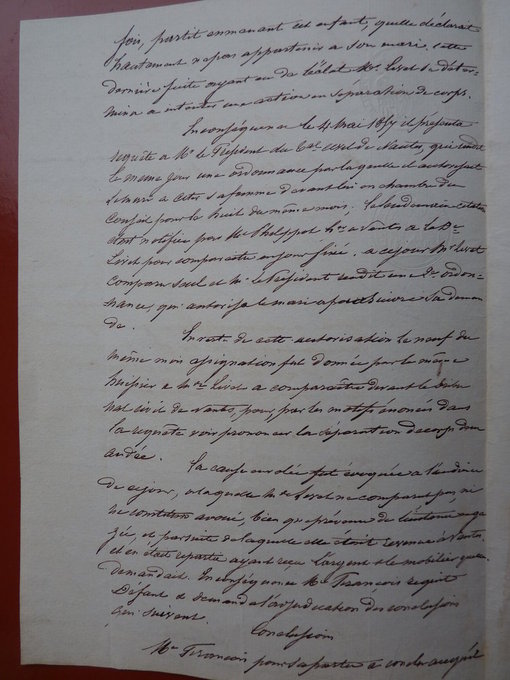 fois, partit emmenant cet enfant, qu'elle déclarait
hautement n'a pas appartenir à son mari. cette
dernière fuite ayant eu de l'éclat Mr. Livet se déter-
mina a intenter une action en séparation de corps.
En conséquence le 4 Mai 1857 il présenta
requête a Mr le Président du civil de Nantes, qui rendit
le même jour une ordonnance par laquelle il autorisait
le mari a citer sa femme devant lui en chambre du
Conseil pour le huit du même mois.
dont notifiée par Me Philippot hr. a Nantes a la De
Livet pour comparaître au jour fixé. a ce jour Mr Livet
comparu seul et Mr. le Président rendit une 2e ordon-
nance, qui autorisa le mari a poursuivre sa deman
de.
En vertu de cette autorisation le neuf du
même mois assignation fut donnée par le même
huissier a Me Livet a comparaître devant le tribu
nal civil de Nantes, pour par les motifs énoncés dans
la requête voir prononcer la séparation de corps dem
andée.
La cause enrolée fut évoquée a l'audience
de ce jour, a laquelle Me Livet ne comparut pas, ni
ne constitua avoué, bien que prévenue de l'instance enga
gée, et par suite de laquelle elle était revenue à Nantes
et en était repartie ayant reçu l'argent et le mobilier qu'elle
demandait. En conséquence Me Francois requit
Défaut et demanda l'adjudication des conclusions
qui suivent.
Conclusions
Me Francois pour sa partie a conclu a ce qu'il